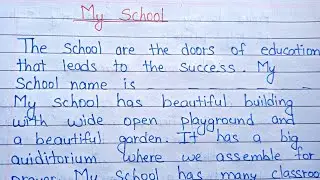 My School
The School are the doors of education
that leads to the success. My
School name is
My School has beautiful building
with wide open playground and
a beautiful garden. It has a big
auiditorium where we assemble for
prayer. My School has many classroo